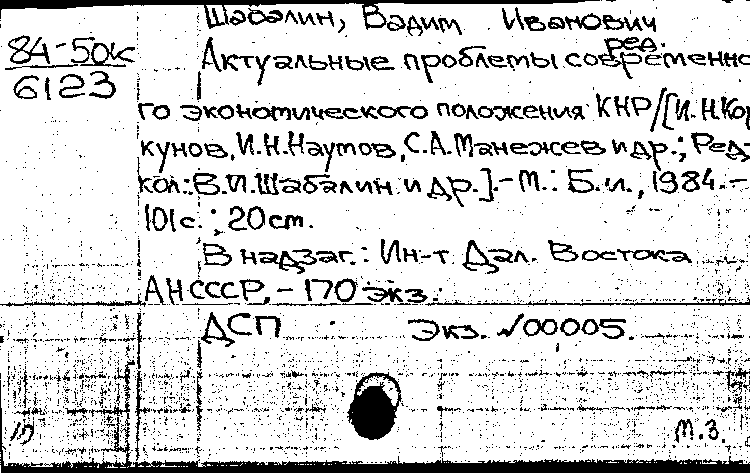 Шабалин, Вадим Иванович
ред.
84-50к
6123
Актуальные проблемы современно
го экономического положения КНР/[И.Н.Кор
кунов, И.Н.Наумов, С.А.Манежев и др.; Ред-
кол.: В.И.Шабалин и др.].-М.: Б.и., 1984.-
101с.; 20см.
В надзаг.: Ин-т Дал. Востока
АНСССР. - 170 экз.
ДСП Экз. √00005.
м.з.